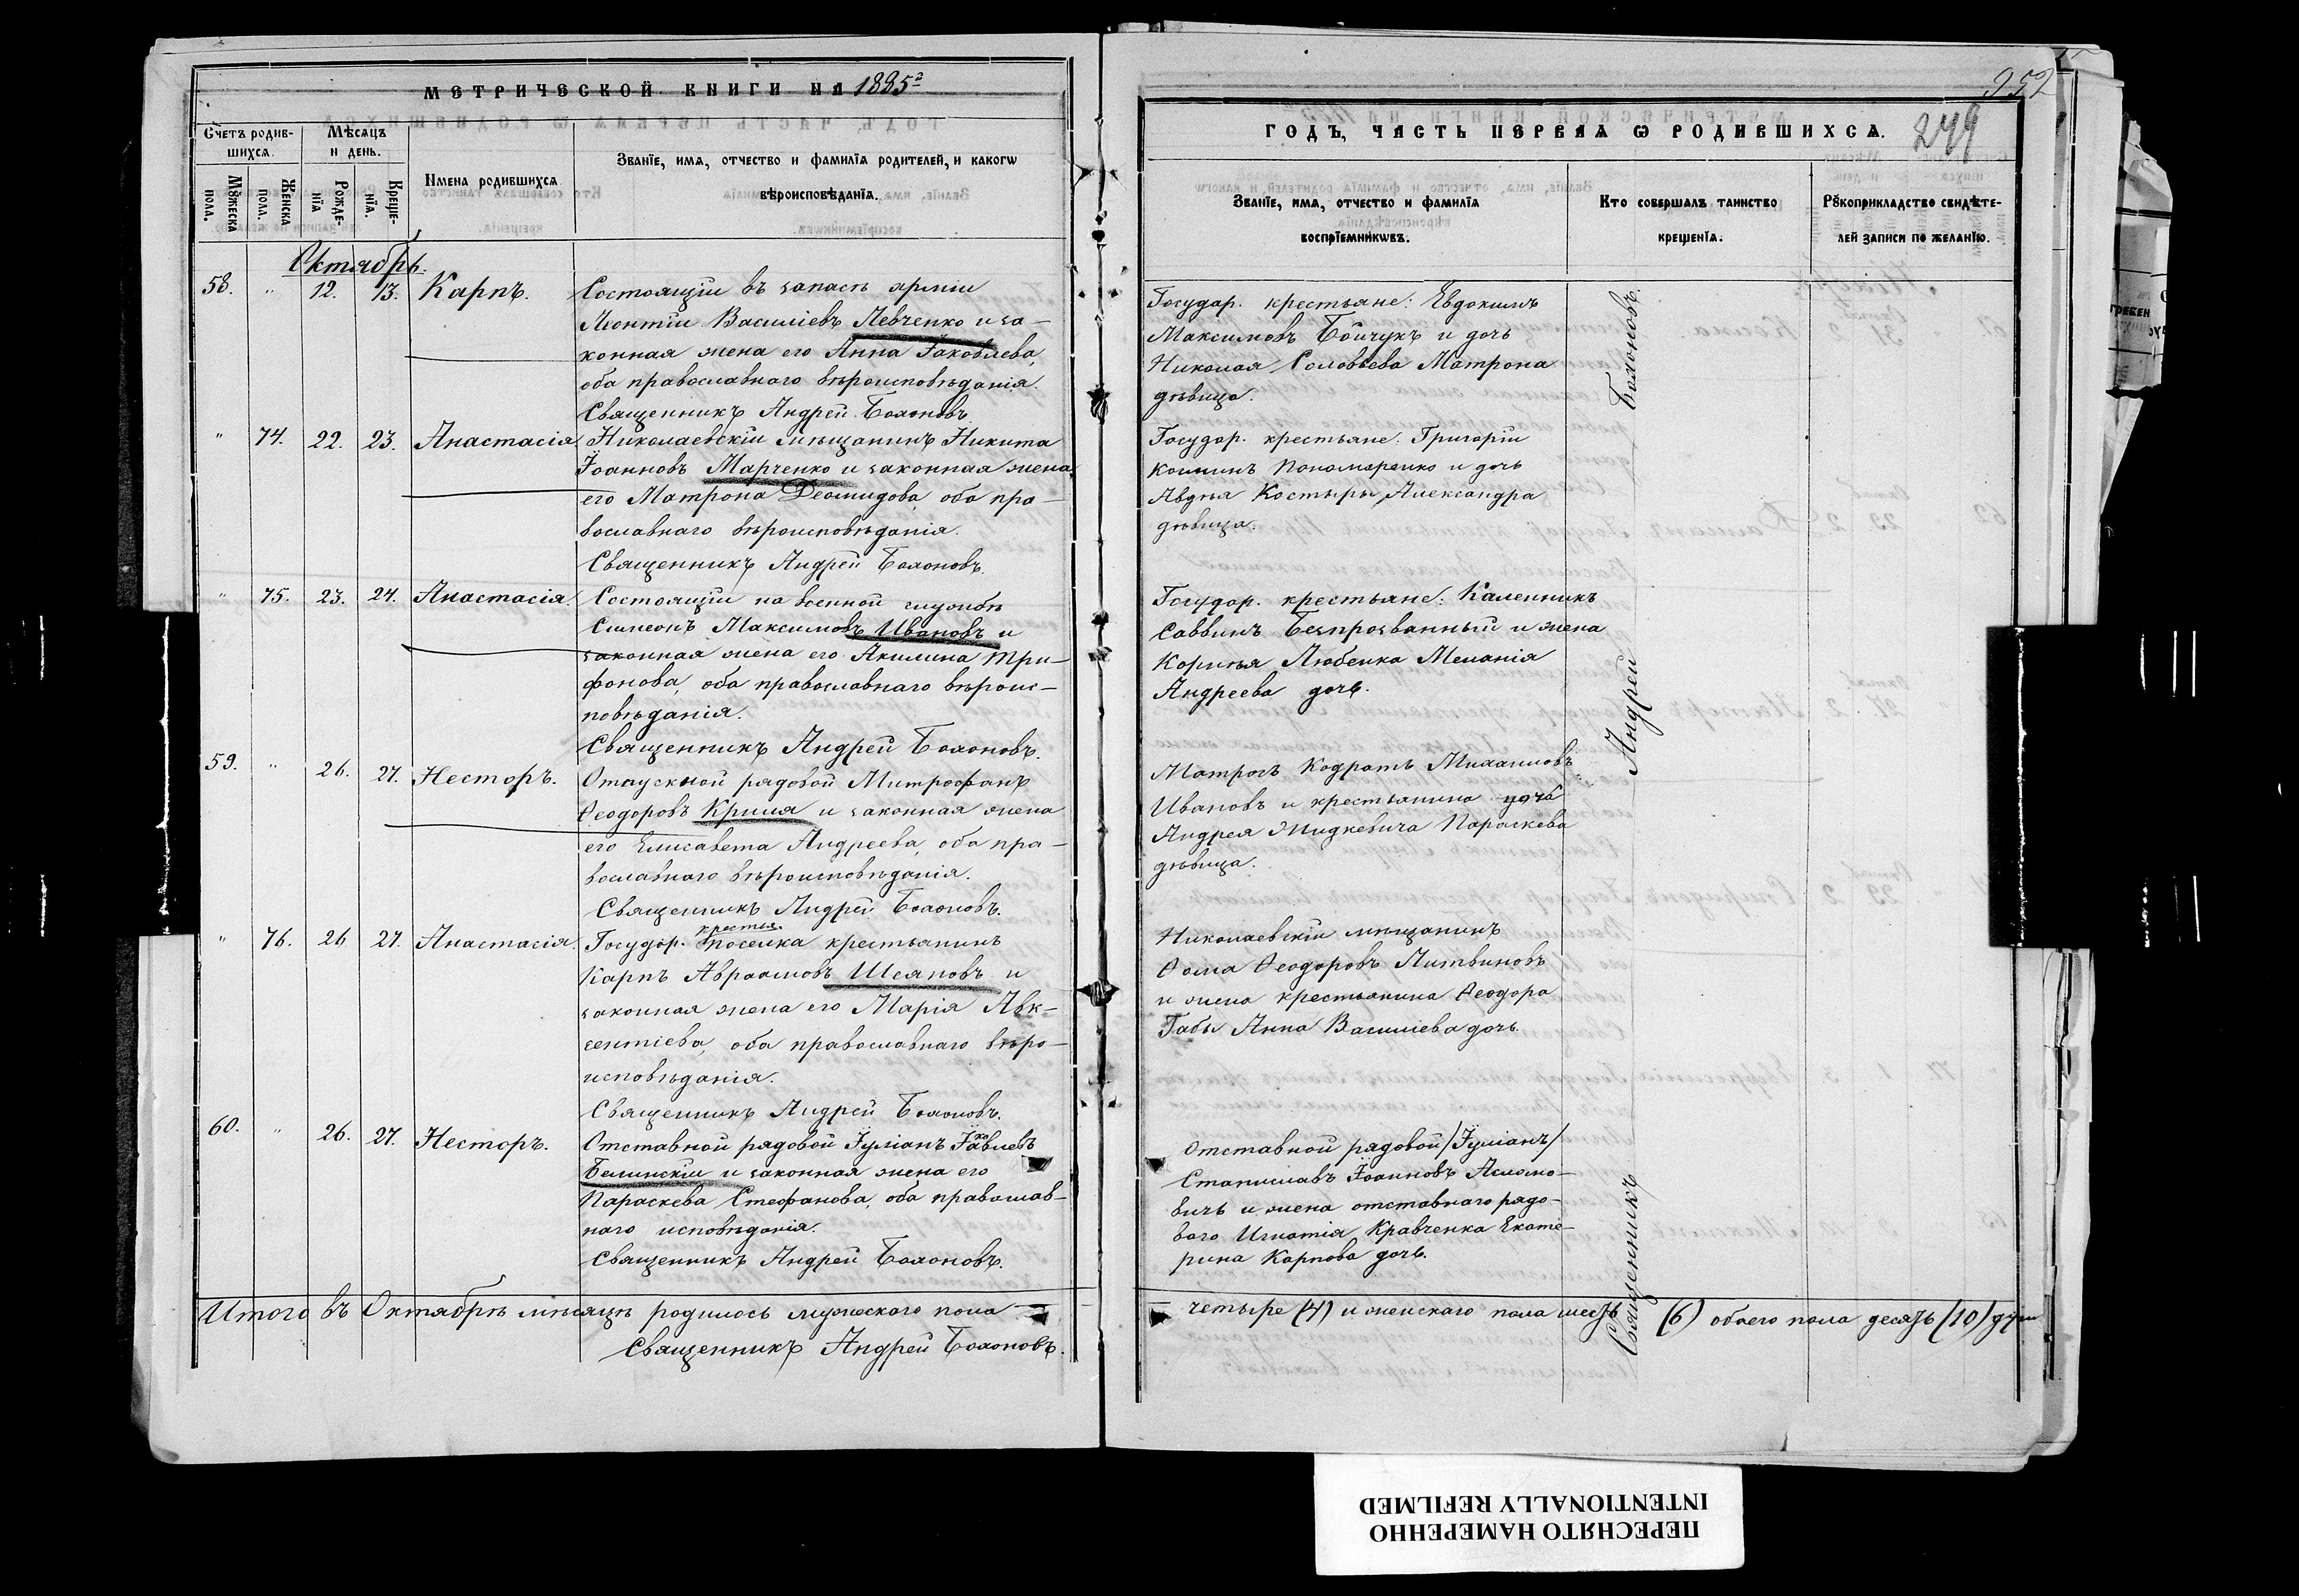 МЕТРИЧЕСКОЙ КНИГИ НА 1885г
Счетъ родив-
шихся.
Мѣсяцъ
и день.
Мꙋжеска
пола.
Женска
пола.
Рожде-
нїя
Креще-
нїя.
Имена родившихся
Званїе, имя, отчество и фамилїя родителей, и какогѡ
вѣроисповѣданїя.
Октябрь.
58. " 12. 13. Карпъ.
Состоящій въ запасѣ арміи
Леонтій Василіевъ Левченко и за-
конная жена его Анна Іаковлева,
оба православнаго вѣроисповѣданія.
Священникъ Андрей Болоновъ
" 74. 22. 23. Анастасія
Николаевскій мѣщанинъ Никита
Іоанновъ Марченко и законная жена
его Матрона Деомидова, оба пра-
вославнаго вѣроисповѣданія.
Священникъ Андрей Болоновъ.
" 75. 23. 24. Анастасія.
Состоящій на военной службѣ
Симеонъ Максимовъ Ивановъ и
законная жена его Акилина Три-
фонова, оба православнаго вѣроис-
повѣданія.
Священникъ Андрей Болоновъ.
59. " 26. 27. Несторъ.
Отпускной рядовой Митрофанъ
Ѳеодоровъ Криля и законная жена
его Елисавета Андреева, оба пра-
вославнаго вѣроисповѣданія.
Священникъ Андрей Болоновъ.
" 76. 26 27. Анастасія
крестья.
Государ. поселка крестьянинъ
Карпъ Авраамовъ Шеяновъ и
законная жена его Марія Авк-
сентіева, оба православнаго вѣро-
исповѣданія.
Священникъ Андрей Болоновъ.
60. " 26. 27. Несторъ.
Отставной рядовой Іуліанъ Іаковлевъ
Белинскій и законная жена его
Параскева Стефанова, оба православ-
наго исповѣданія.
Священникъ Андрей Болоновъ.
Итого въ Октябрѣ мѣсяцѣ родилось мужескаго пола —
Священникъ Андрей Болоновъ.
249
ГОДЪ, ЧАСТЬ ПЕРВАЯ Ѡ РОДИВШИХСЯ.
Званїе, имя, отчество и фамилїя
воспрїемникѡвъ.
Кто совершалъ таинство
крещенїя.
Рꙋкоприкладство свидѣте-
лей записи по желанїю.
Государ. крестьяне: Евдокимъ
Максимовъ Бойчукъ и дочь
Николая Соловьева Матрона
дѣвица.
Государ. крестьяне: Григорій
Пономаренко и дочь
Авдѣя Костыры Александра
дѣвица.
Государ. крестьяне: Каленникъ
Саввинъ Безпрозванный и жена
Корнѣя Любенка Меланія
Андреева дочь.
Матросъ Кодратъ Михаиловъ
Ивановъ и крестьянина дочь
Андрея Жидкевича Параскева
дѣвица.
Николаевскій мѣщанинъ
Ѳома Ѳеодоровъ Литвиновъ
и жена крестьянина Ѳеодора
Габы Анна Василіева дочь.
Отставной рядовой /Іуліанъ/
Станиславъ Іоанновъ Асмано-
вичъ и жена отставнаго рядо-
ваго Игнатія Кравченка Екате-
рина Карпова дочь.
Священникъ Андрей Болоновъ.
— четыре (4) и женскаго пола шесть (6) обоего пола десять (10) душ
ПЕРЕСНЯТО НАМЕРЕННО
INTENTIONALLY REFILMED